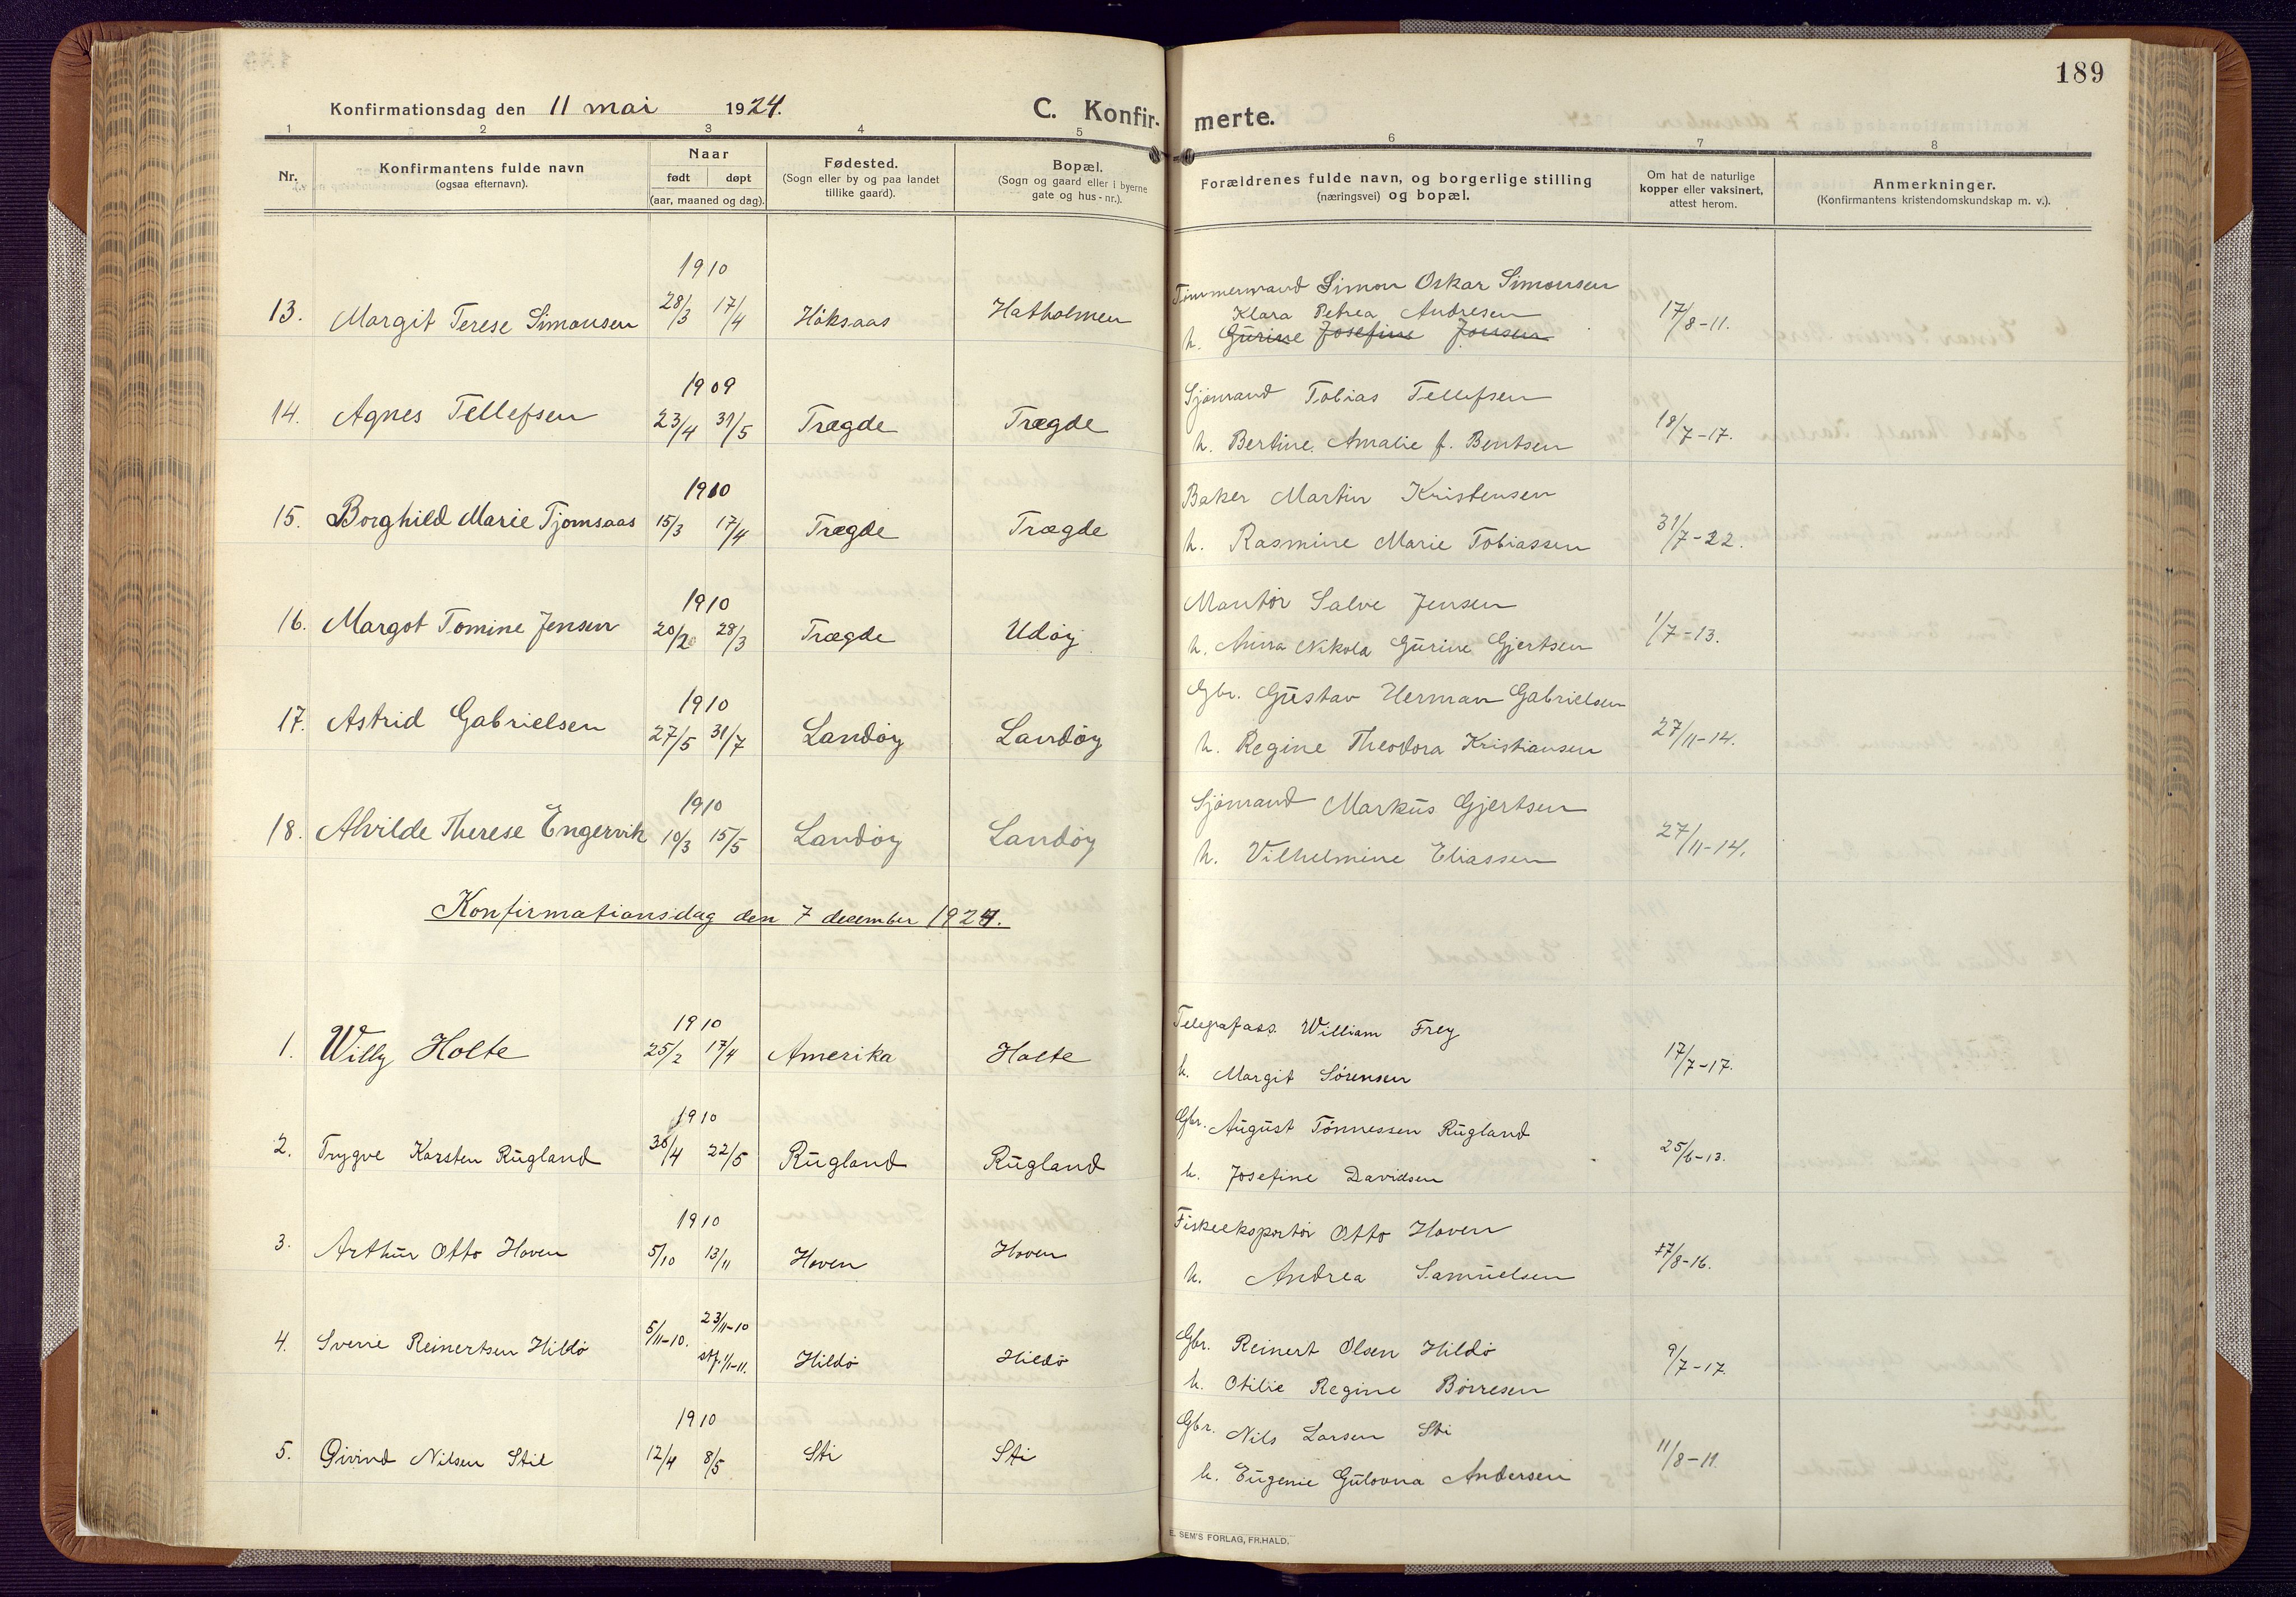 189
Konfirmationsdag den 11 mai 1924.
C. Konfir- merte.
1 2 3 4 5 6 7 8
Nr.
Konfirmantens fulde navn
(ogsaa efternavn).
Naar
født døpt
(aar, maaned og dag).
Fødested.
(Sogn eller by og paa landet
tillike gaard).
Bopæl.
(Sogn og gaard eller i byerne
gate og hus-nr.).
Forældrenes fulde navn, og borgerlige stilling
(næringsvei) og bopæl.
Om hat de naturlige
kopper eller vaksinert,
attest herom.
Anmerkninger.
(Konfirmantens kristendomskundskap m. v.).
1910
Tømmermand Simon Oskar Simonsen
13. Margit Terese Simonsen 28/3 17/4 Höksaas Hatholmen 17/8-11.
Klara Petrea Andresen
h. Gurine Josefine Jensen
1909
Sjömand Tobias Tellefsen
14. Agnes Tellefsen 23/4 31/5 Trægde Trægde 18/7-17.
h. Bertine Amalie f. Bentsen
1910
Baker Martin Kristensen
15. Borghild Marie Tjomsaas 15/3 17/4 Trægde Trægde 31/7-22.
h. Rasmine Marie Tobiassen
1910
Montör Salve Jensen
16. Margot Tomine Jensen 20/2 28/3 Trægde Udöy 1/7-13.
h. Anna Nikola Gurine Gjertsen
1910
Gbr. Gustav Herman Gabrielsen
17. Astrid Gabrielsen 27/5 31/7 Landöy Landöy 27/11-14.
h. Regine Theodora Kristiansen
1910
Sjömand Markus Gjertsen
18. Alvilde Therese Engervik 10/3 15/5 Landöy Landöy 27/11-14.
h. Vilhelmine Eliassen
Konfirmationsdag den 7 december 1924.
1910
Telegrafass. William Frey
1. Willy Holte 25/2 17/4 Amerika Holte 17/7-17.
h. Margit Sörensen
1910
Gbr. August Tönnessen Rugland
2. Trygve Karsten Rugland 30/4 22/5 Rugland Rugland 25/6-13.
h. Josefine Davidsen
1910
Fiskeeksportör Otto Hoven
3. Arthur Otto Hoven 5/10 13/11 Hoven Hoven 17/8-16.
h. Andrea Samuelsen
23/11-10
Gbr. Reinert Olsen Hildö
4. Sverre Reinertsen Hildö 5/11-10. stf. 1/1-11. Hildö Hildö 9/7-17.
h. Otilie Regine Börresen
1910
Gbr. Nils Larsen Sti
5. Öivind Nilsen Stil 12/4 8/5 Sti Sti 11/8-11.
h. Eugenie Gulovna Andersen
E. SEM'S FORLAG, FR.HALD.